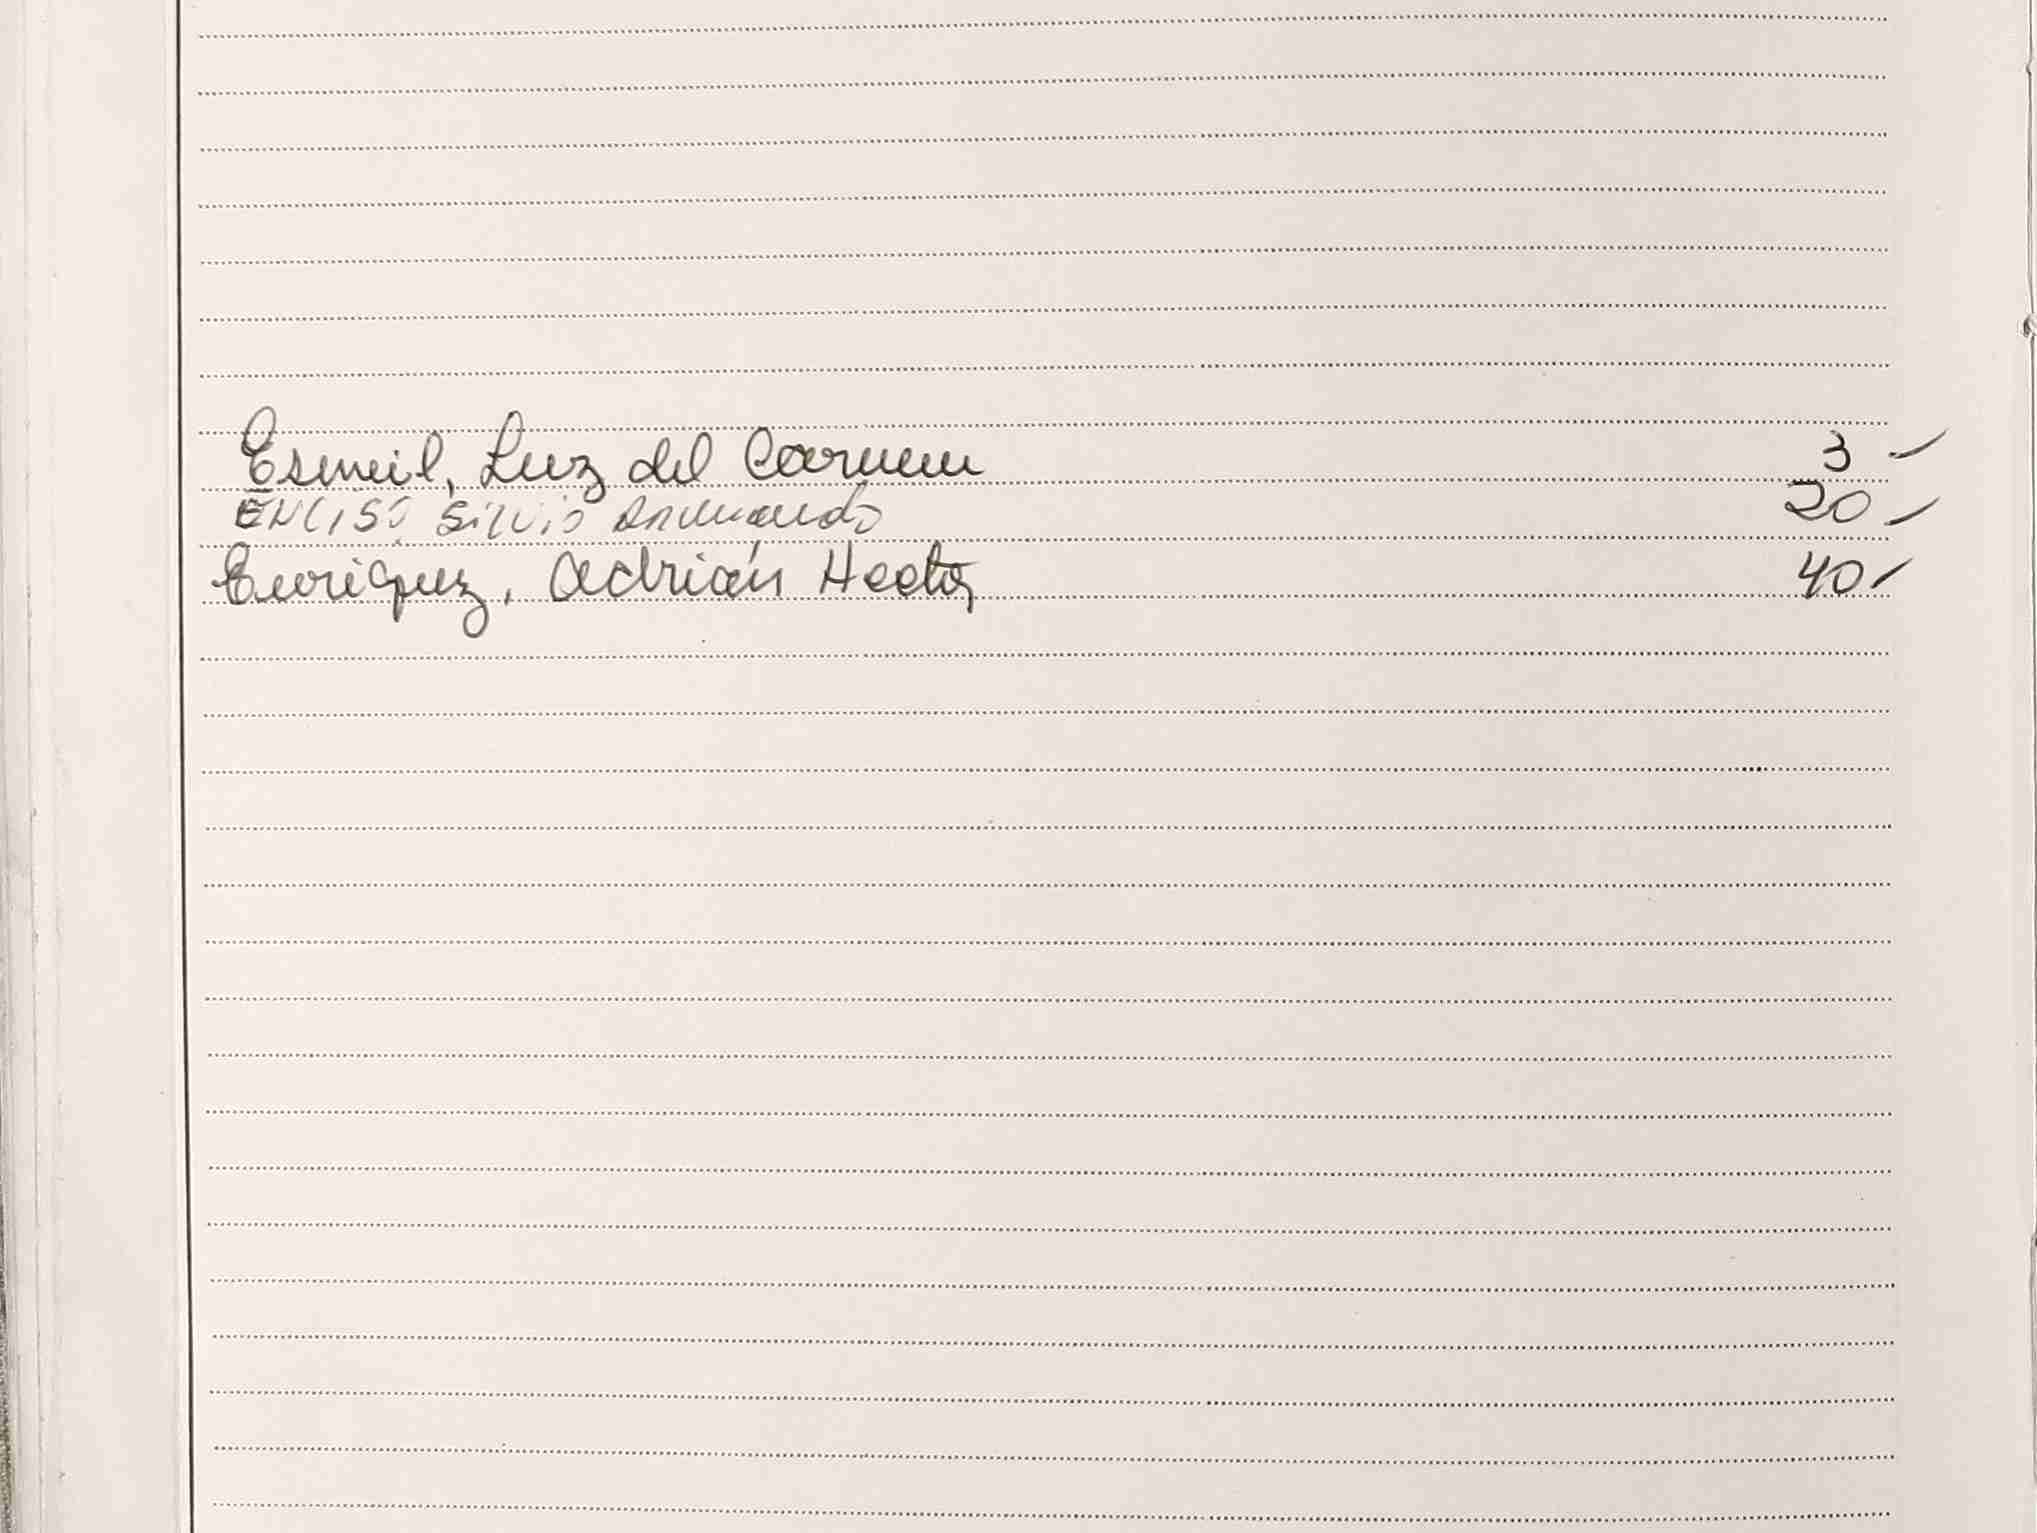 Esmeil, Luz del Carmen 3 -
ENCISO, Silvio Armando 20 -
Enriquez, Adrián Hector 40 -